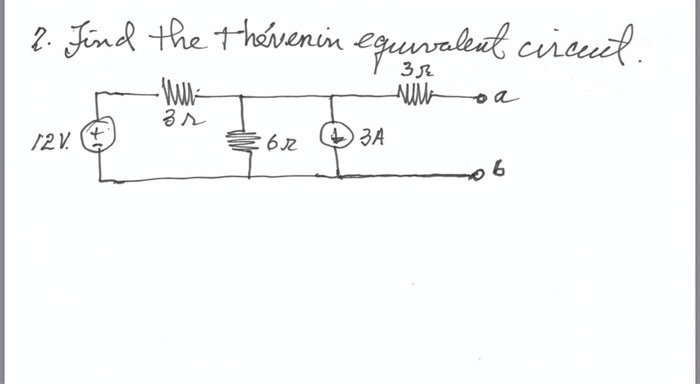 2. Find the thévenin equivalent circuit.
3Ω
3Ω
a
12V.
+
-
6Ω
3A
b